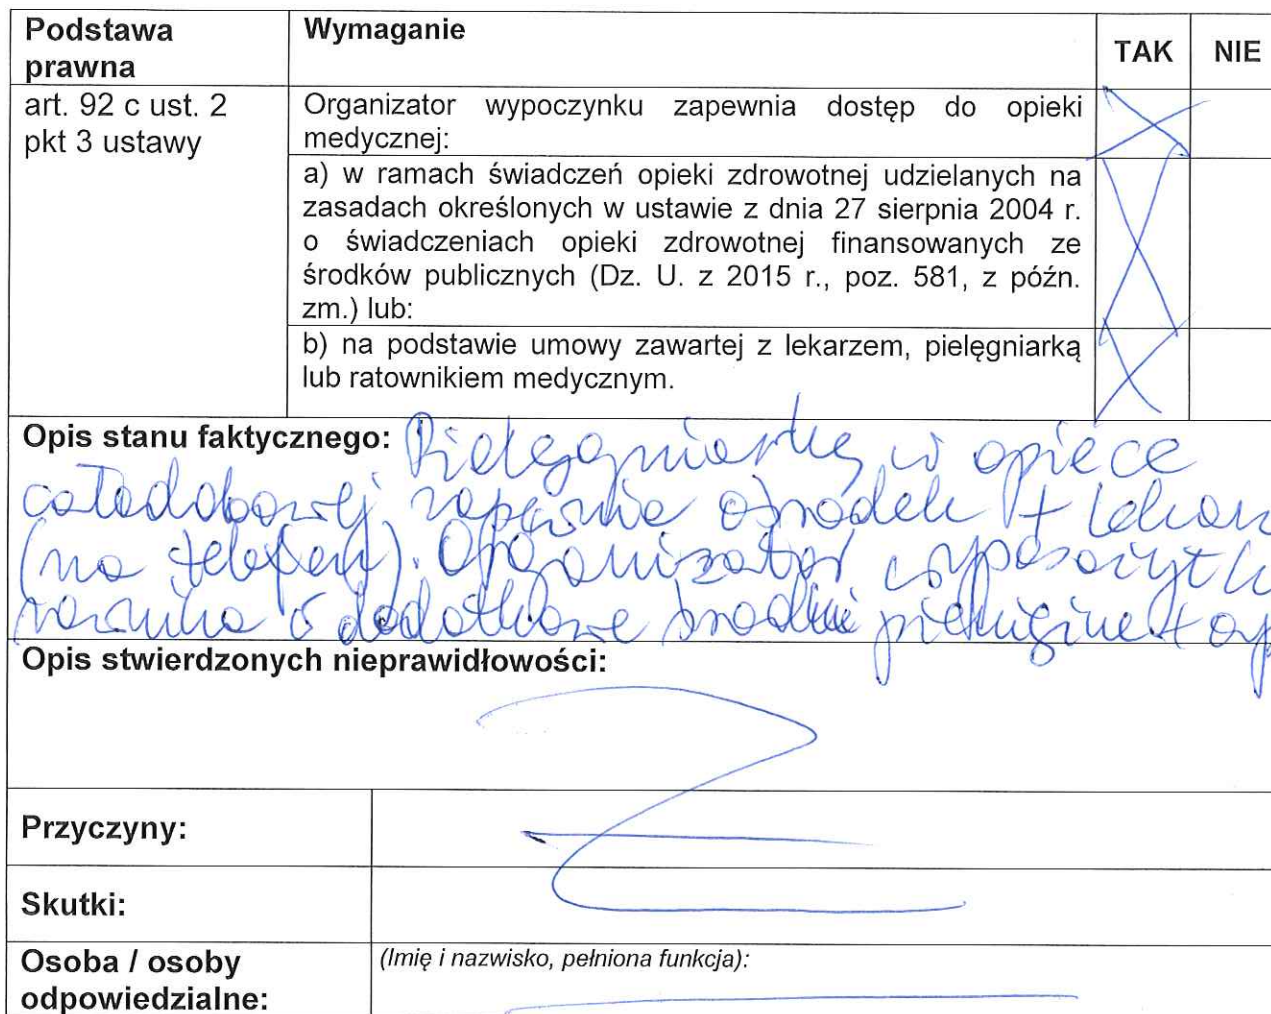 Podstawa prawna
Wymaganie
TAK
NIE
art. 92 c ust. 2
pkt 3 ustawy
Organizator wypoczynku zapewnia dostęp do opieki
medycznej:
a) w ramach świadczeń opieki zdrowotnej udzielanych na
zasadach określonych w ustawie z dnia 27 sierpnia 2004 r.
o świadczeniach opieki zdrowotnej finansowanych ze
środków publicznych (Dz. U. z 2015 r., poz. 581, z późn.
zm.) lub:
b) na podstawie umowy zawartej z lekarzem, pielęgniarką
lub ratownikiem medycznym.
Opis stanu faktycznego: Pielęgniarkę w opiece
całodobowej zapewnia ośrodek + lekarz
(na telefon). Organizator wyposażył
w dodatkowe środki
Opis stwierdzonych nieprawidłowości:
Przyczyny:
Skutki:
Osoba / osoby
odpowiedzialne:
(Imię i nazwisko, pełniona funkcja):